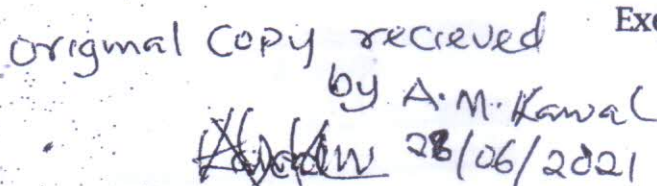 original copy recieved
Exe
by A.M. Kawal
28/06/2021